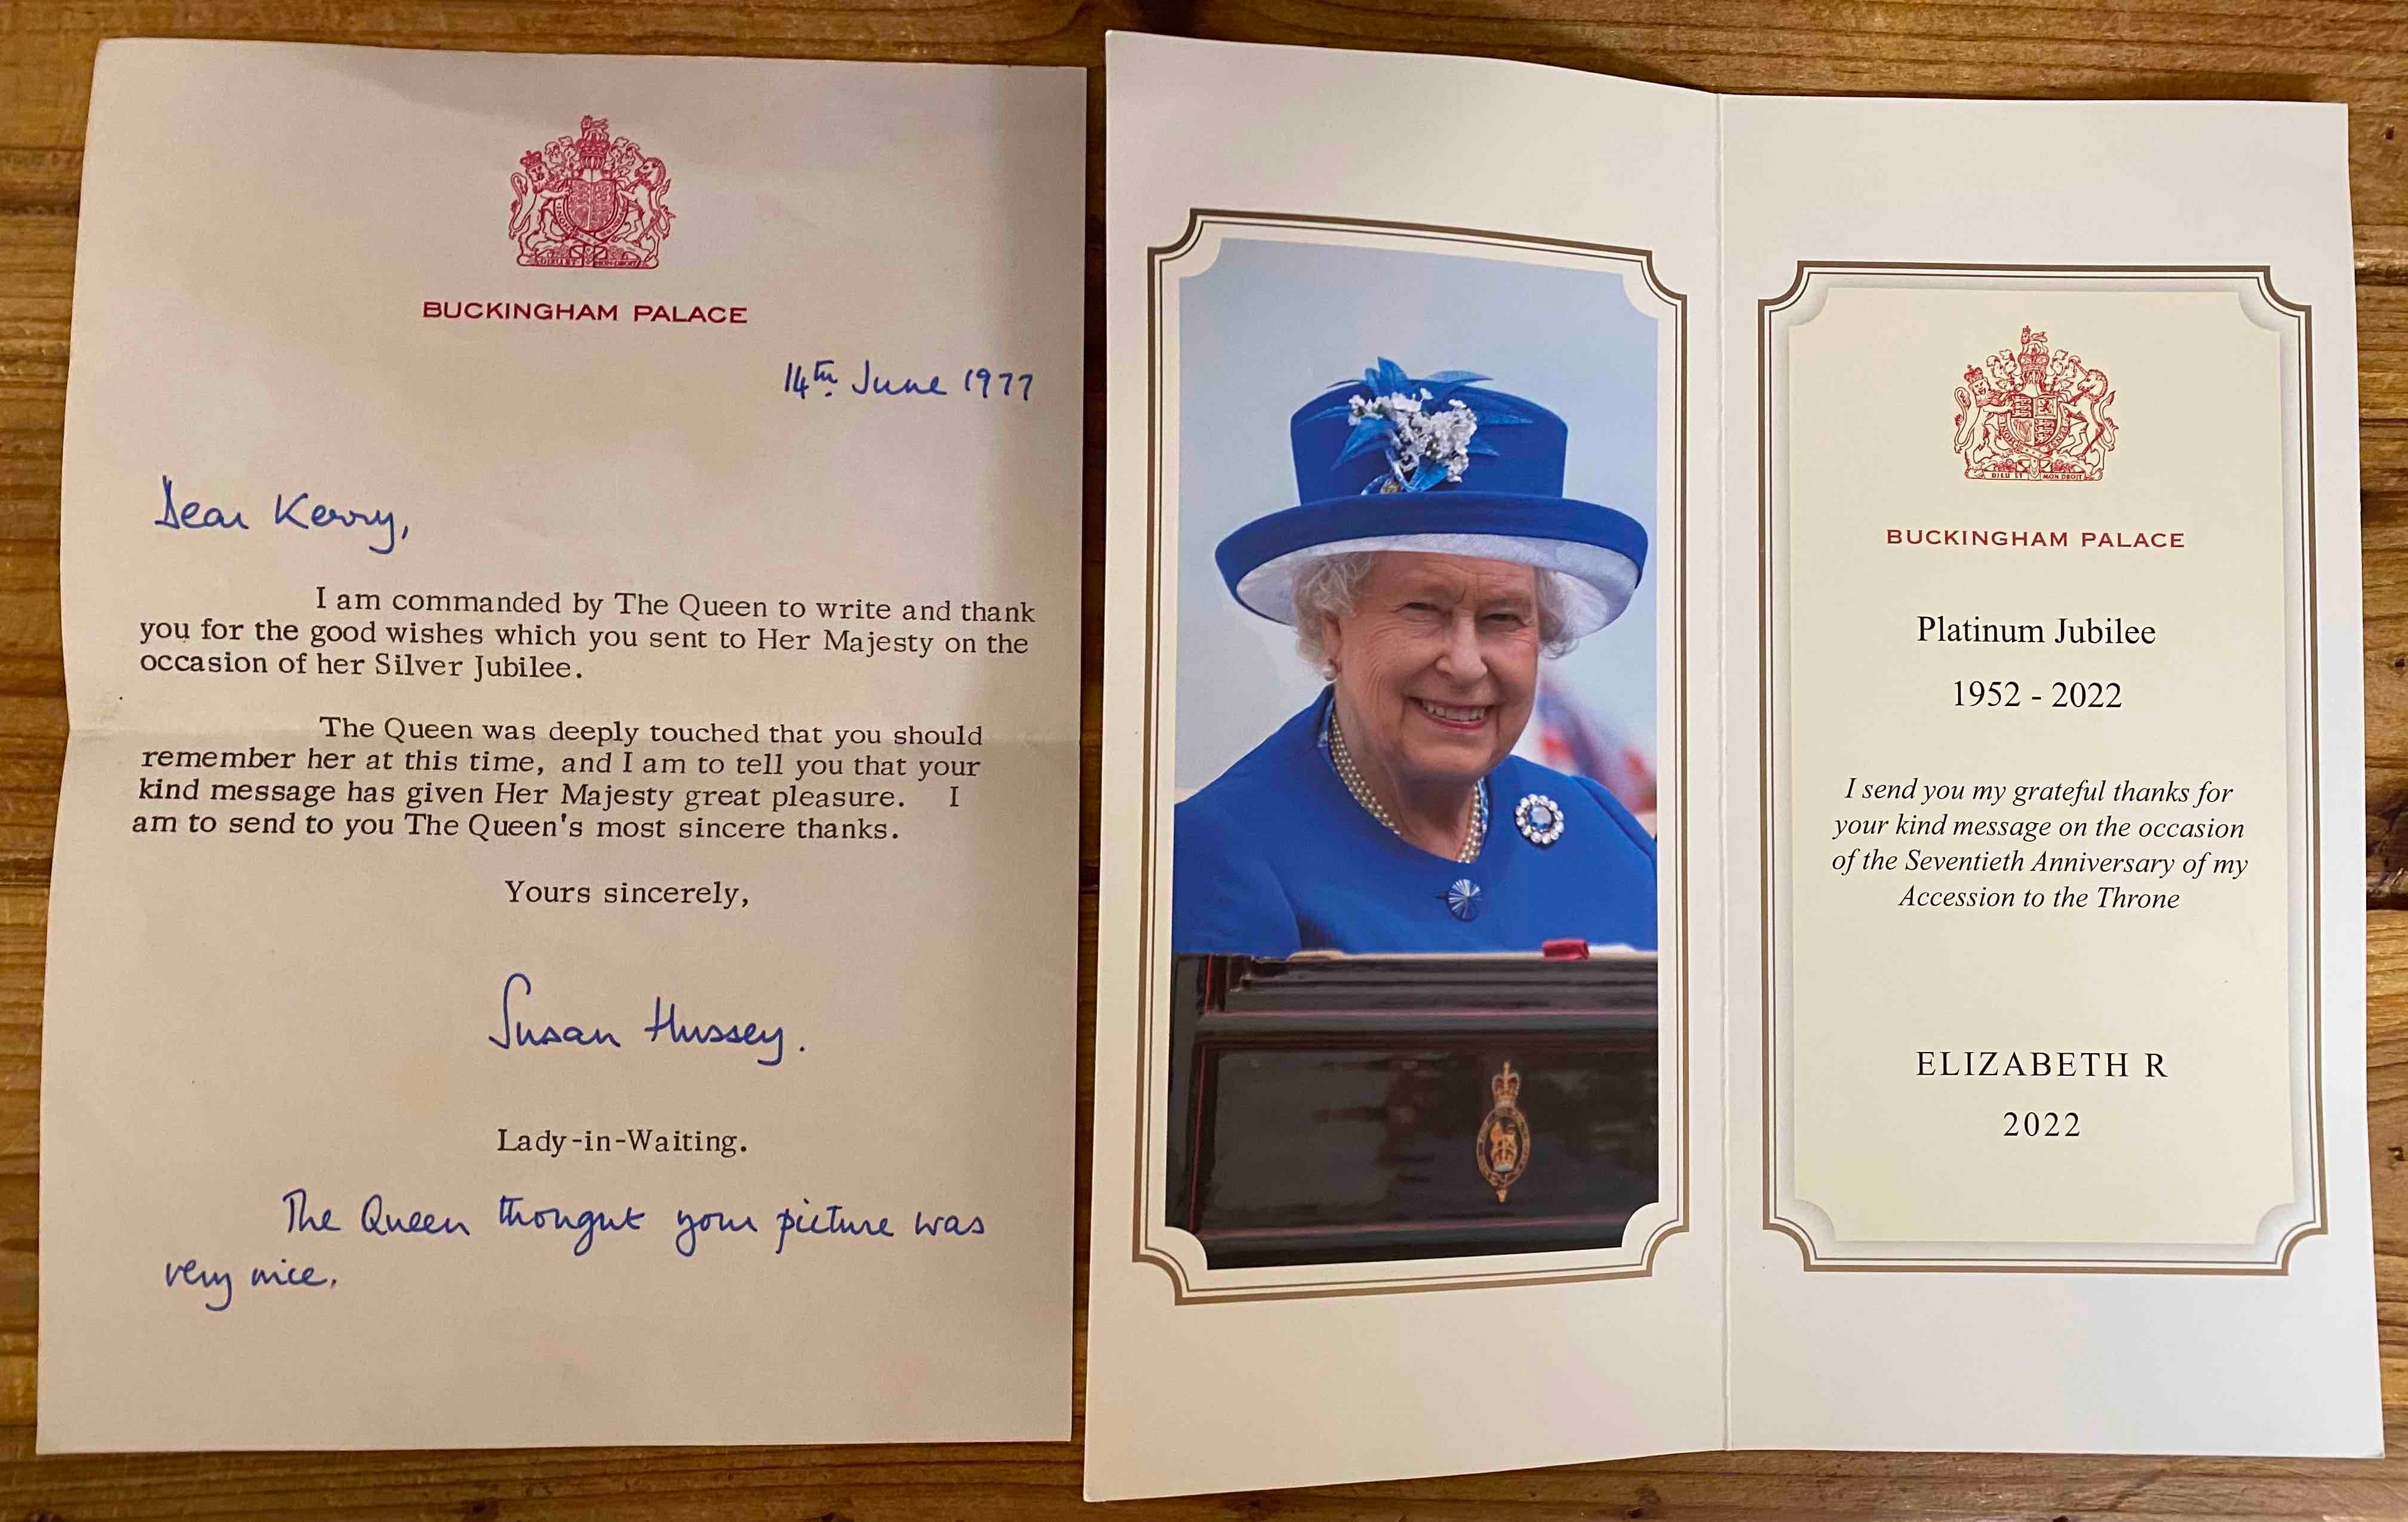 BUCKINGHAM PALACE
14th June 1977
Dear Kerry,
I am commanded by The Queen to write and thank
you for the good wishes which you sent to Her Majesty on the
occasion of her Silver Jubilee.
The Queen was deeply touched that you should
remember her at this time, and I am to tell you that your
kind message has given Her Majesty great pleasure. I
am to send to you The Queen's most sincere thanks.
Yours sincerely,
Susan Hussey.
Lady-in-Waiting.
The Queen thought your picture was
very nice.
DIEU ET MON DROIT
BUCKINGHAM PALACE
Platinum Jubilee
1952 - 2022
I send you my grateful thanks for
your kind message on the occasion
of the Seventieth Anniversary of my
Accession to the Throne
ELIZABETH R
2022